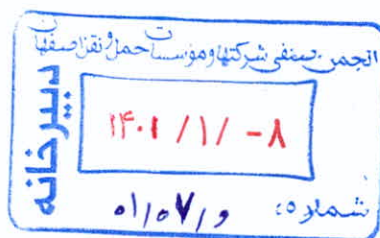 انجمن صنفی شرکتها و مؤسسات حمل و نقل اصفهان
دبیرخانه
۱۴۰۱ /۱/ -۸
شماره: ۰۱/۰۷/و